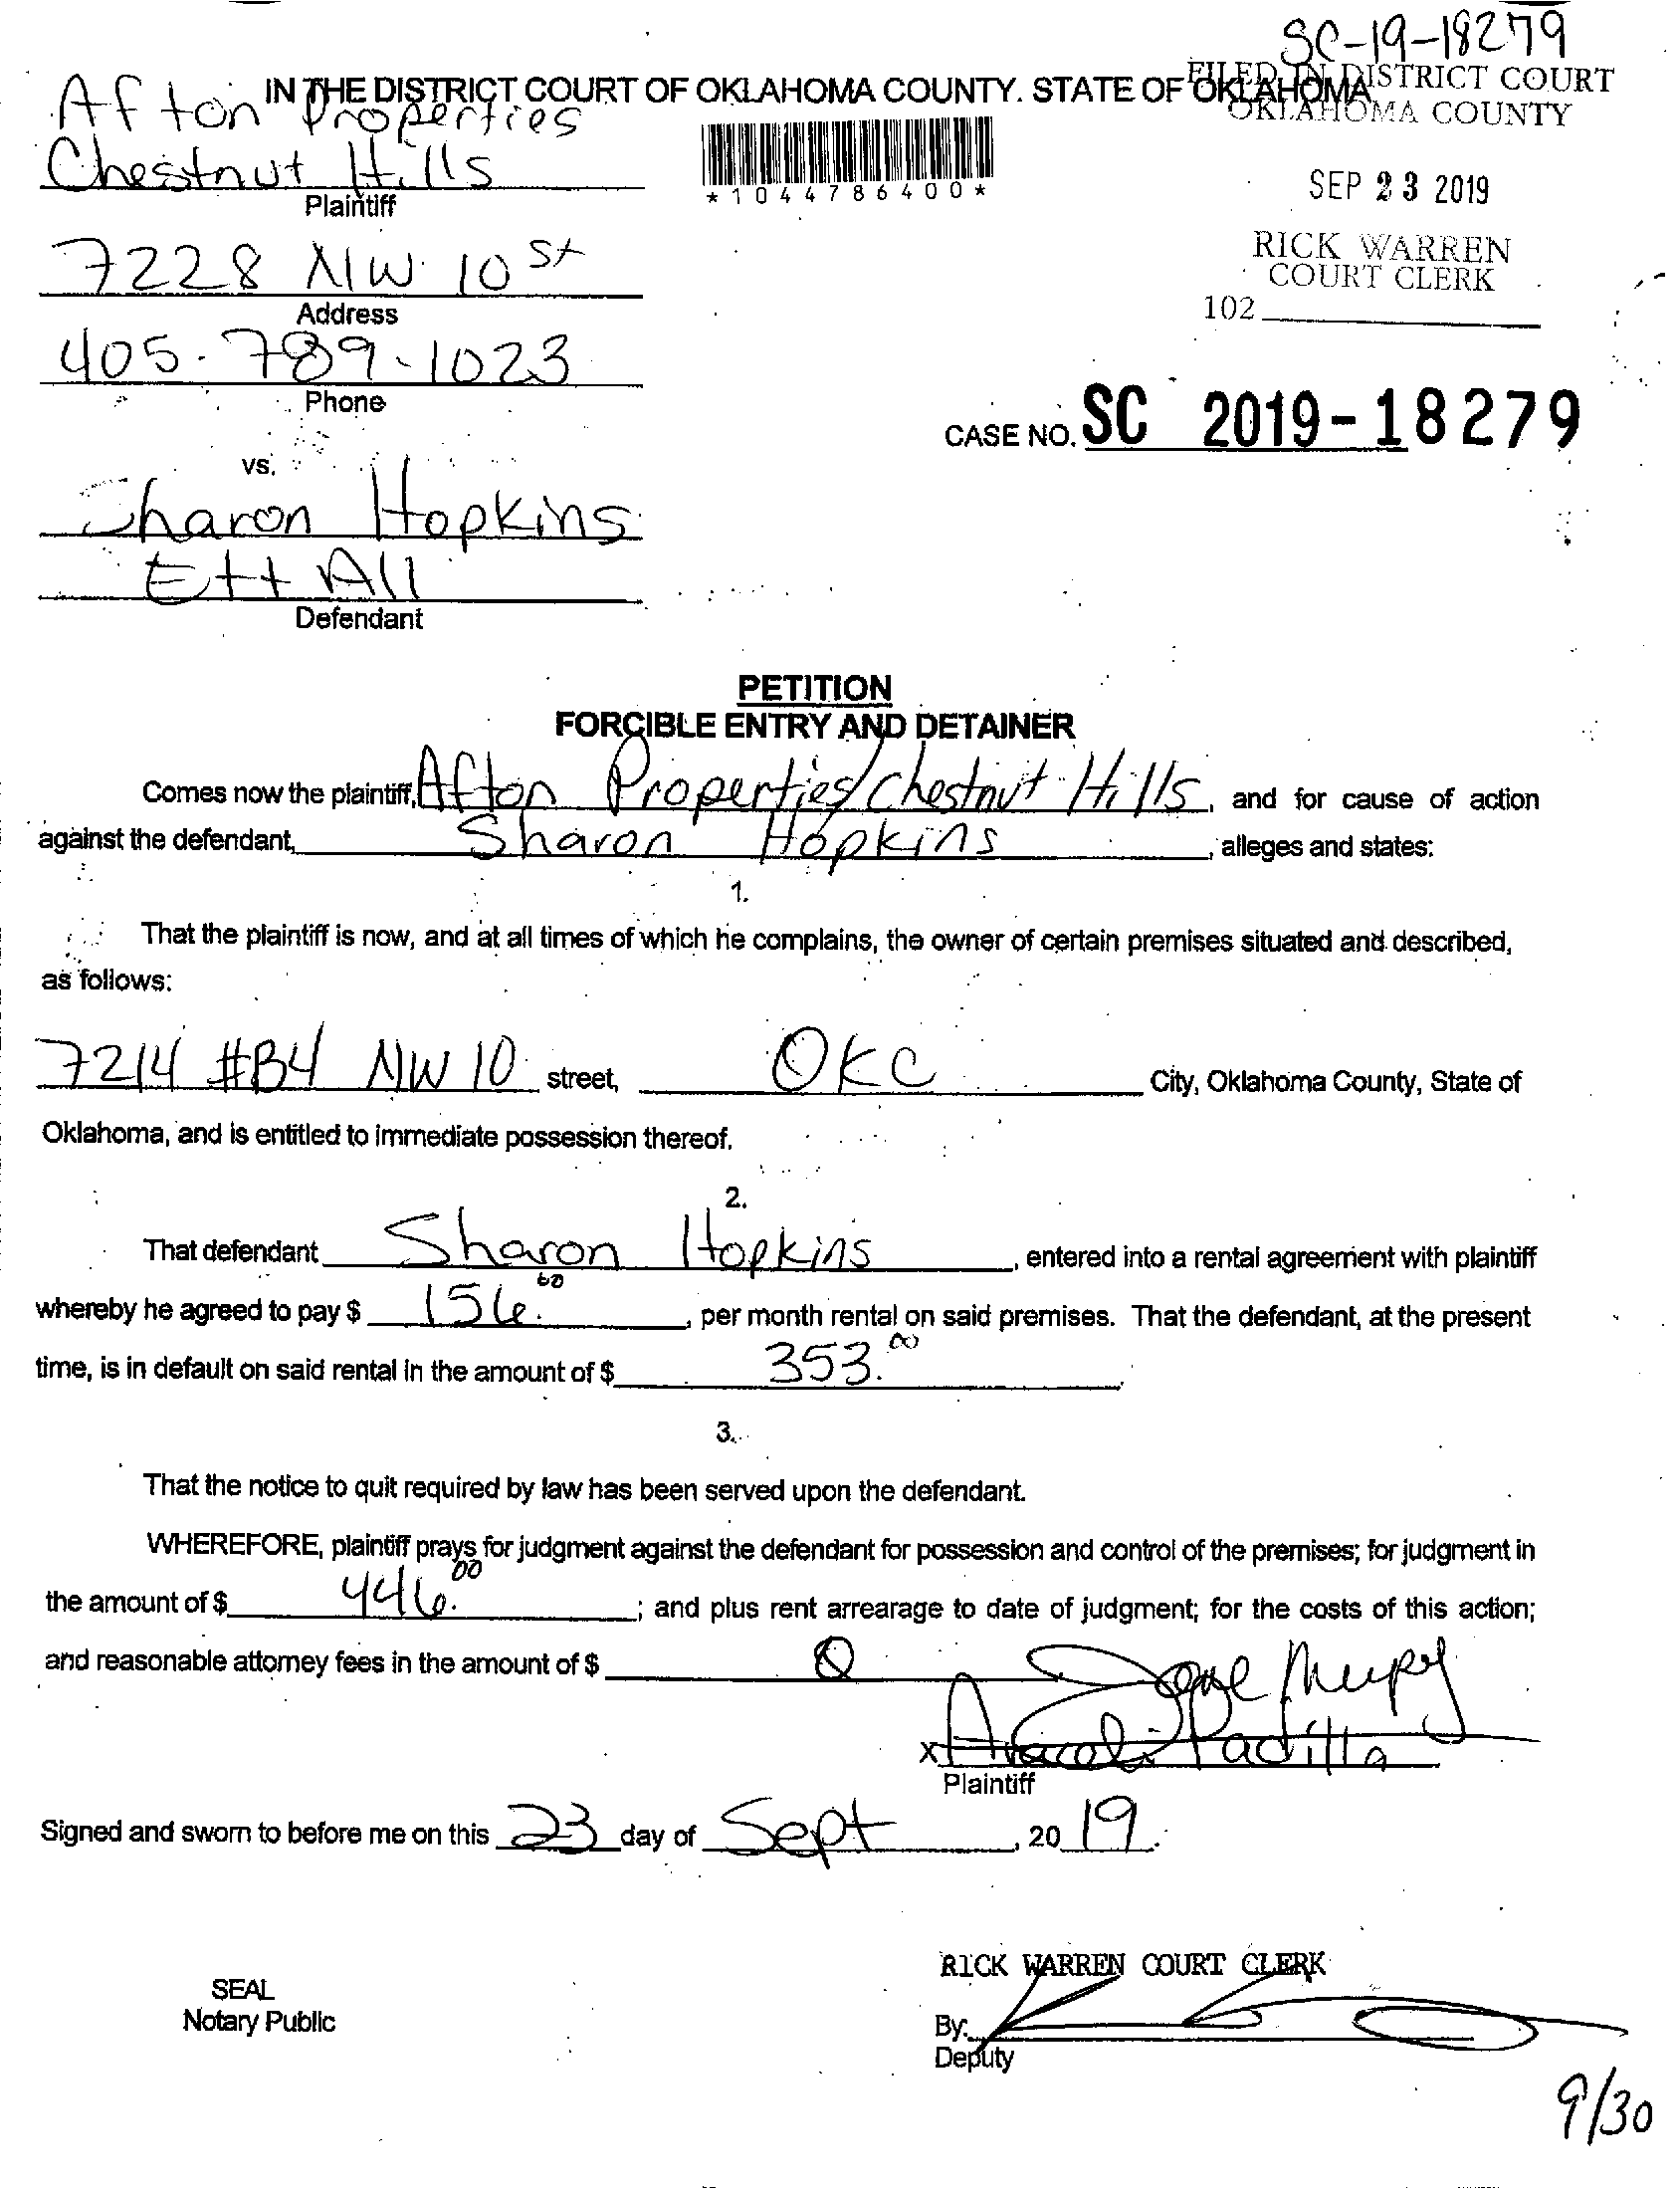 SC-19-18279
IN THE DISTRICT COURT OF OKLAHOMA COUNTY. STATE OF OKLAHOMA
FILED IN DISTRICT COURT
OKLAHOMA COUNTY
Afton Properties
Chestnut Hills
Plaintiff
*1044786400*
SEP 23 2019
RICK WARREN
COURT CLERK
102
7228 NW 10 St
Address
405-789-1023
Phone
CASE NO. SC 2019-18279
vs.
Sharon Hopkins
Ett All
Defendant
PETITION
FORCIBLE ENTRY AND DETAINER
Comes now the plaintiff, Afton Properties/chestnut Hills, and for cause of action
against the defendant, Sharon Hopkins, alleges and states:
1.
That the plaintiff is now, and at all times of which he complains, the owner of certain premises situated and described,
as follows:
7214 #B4 NW 10 street, OKC City, Oklahoma County, State of
Oklahoma, and is entitled to immediate possession thereof.
2.
That defendant Sharon Hopkins, entered into a rental agreement with plaintiff
whereby he agreed to pay $ 156.00, per month rental on said premises. That the defendant, at the present
time, is in default on said rental in the amount of $ 353.00.
3.
That the notice to quit required by law has been served upon the defendant.
WHEREFORE, plaintiff prays for judgment against the defendant for possession and control of the premises; for judgment in
the amount of $ 446.00; and plus rent arrearage to date of judgment; for the costs of this action;
and reasonable attorney fees in the amount of $ 0
x Araceli Padilla
Plaintiff
Signed and sworn to before me on this 23 day of Sept, 20 19.
RICK WARREN COURT CLERK
SEAL
Notary Public
By:
Deputy
9/30